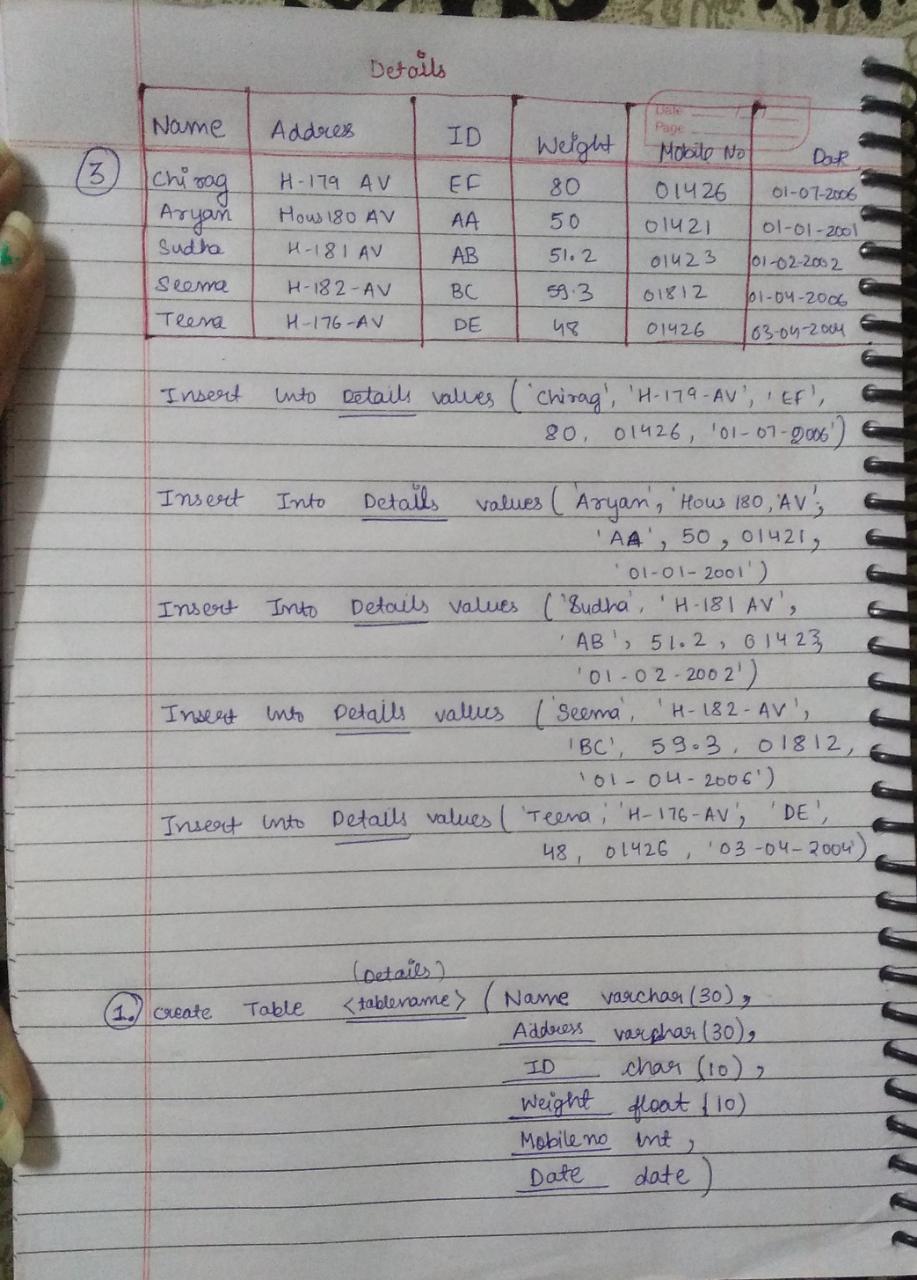 Details
Date
Page
Name Addres ID Weight Mobile No Date
3 Chirag H-179 AV EF 80 01426 01-07-2006
Aryan Hows 180 AV AA 50 01421 01-01-2001
Sudha H-181 AV AB 51.2 01423 01-02-2002
Seema H-182-AV BC 59.3 01812 01-04-2006
Teena H-176-AV DE 48 01426 03-04-2004
Insert Into Details values ('Chirag', 'H-179-AV', 'EF',
80, 01426, '01-07-2006')
Insert Into Details values ('Aryan', 'Hows 180, AV',
'AA', 50, 01421,
'01-01-2001')
Insert Into Details values ('Sudha', 'H-181 AV',
'AB', 51.2, 01423,
'01-02-2002')
Insert Into Details values ('Seema', 'H-182-AV',
'BC', 59.3, 01812,
'01-04-2006')
Insert Into Details values ('Teena', 'H-176-AV', 'DE',
48, 01426, '03-04-2004')
(Details)
1. Create Table <tablename> (Name varchar(30),
Address varchar(30),
ID char (10),
Weight float (10)
Mobile no int,
Date date)